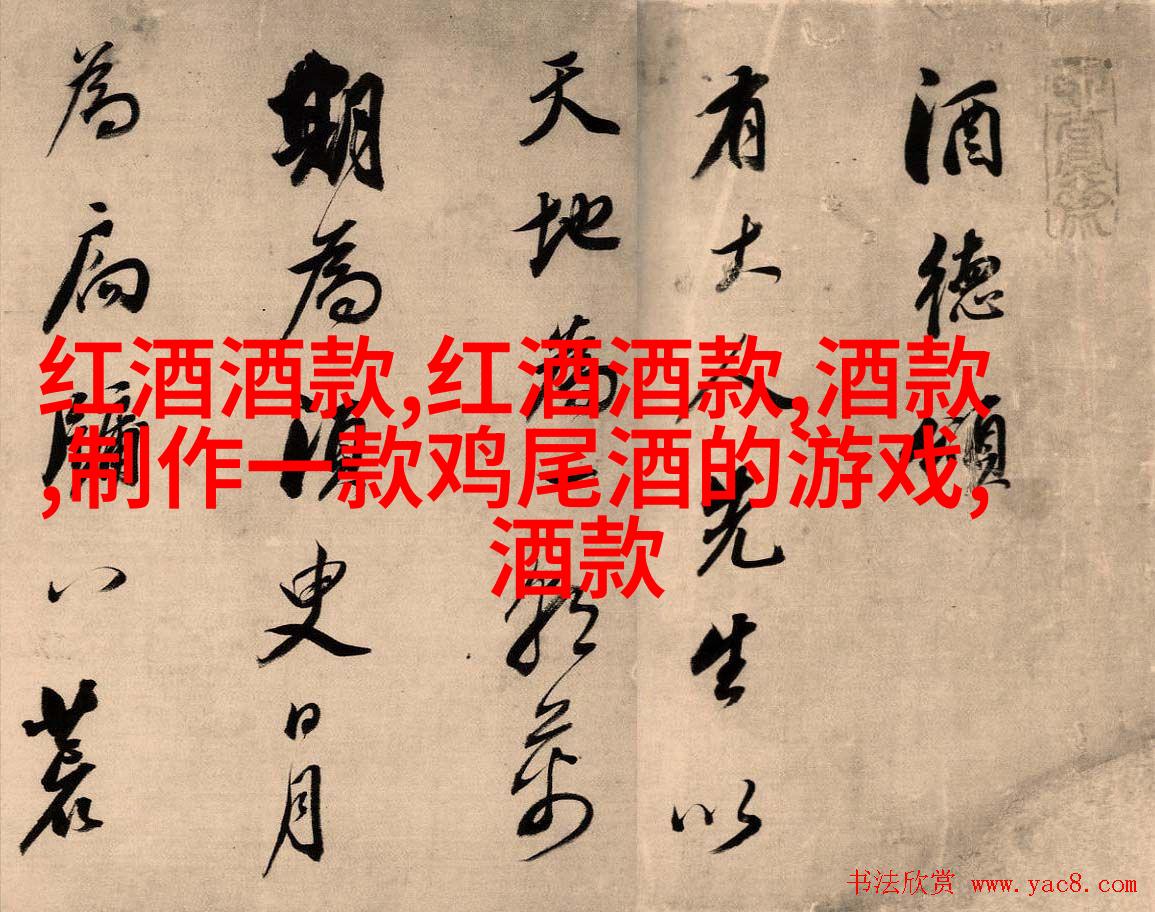 酒德頌
有大人先生以
天地為一朝萬
期為須臾日月
為扃牖八荒
红酒酒款,红酒酒款,酒款
,制作一款鸡尾酒的游戏,
酒款
书法欣赏 www.yac8.com